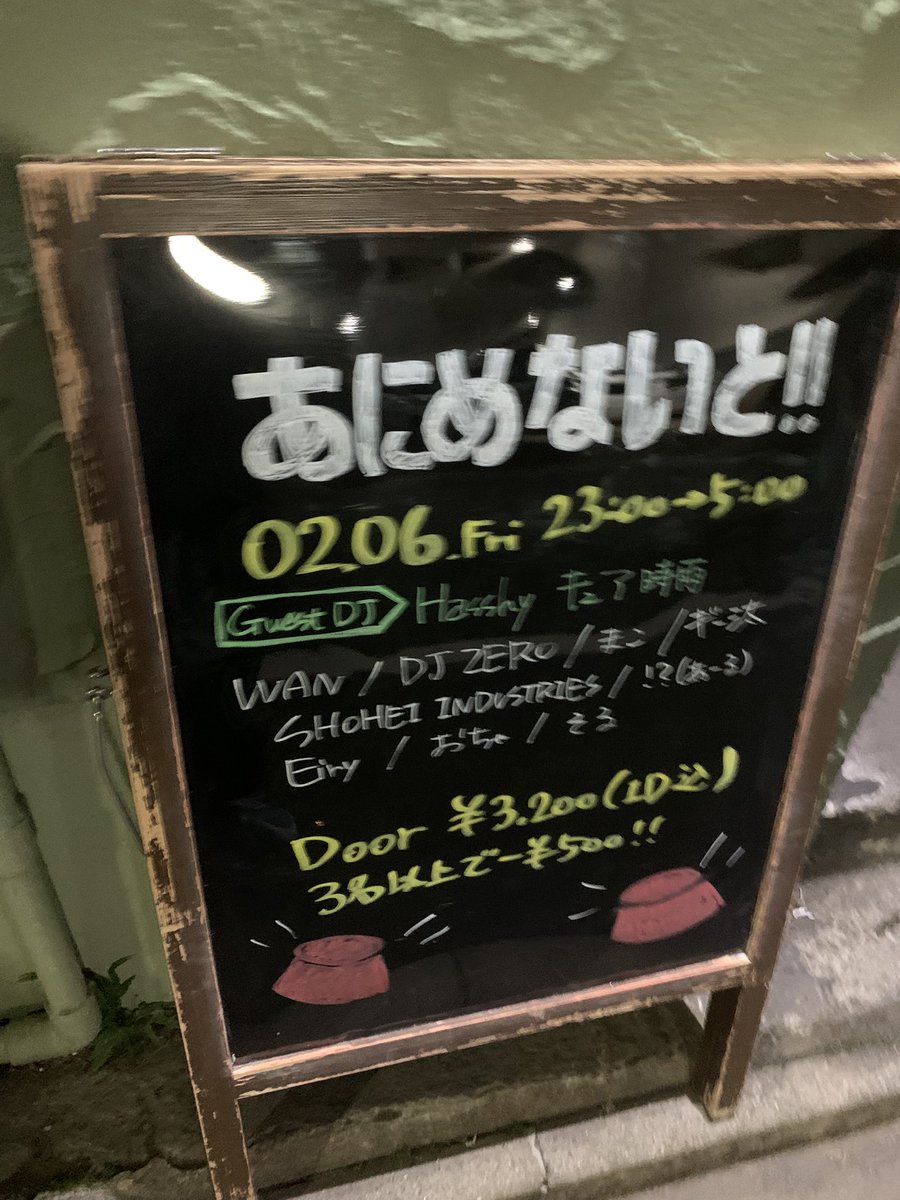 あにめないと!!
02.06.Fri 23:00→5:00
Guest DJ Hasshy キュア時雨
WAN / DJ ZERO / まこ / ギー汰
SHOHEI INDUSTRIES / !?(あーる)
Eiry / おちゃ / そる
Door ¥3.200(1D込)
3名以上で-¥500!!